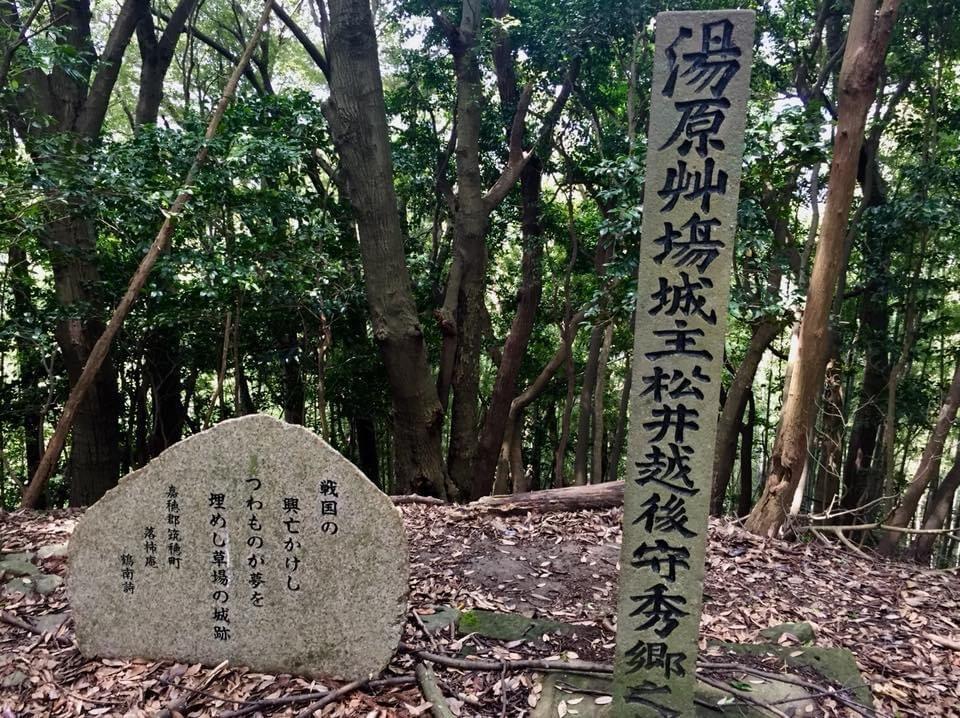 湯原艸場城主松井越後守秀郷之
戦国の
興亡かけし
つわものが夢を
埋めし草場の城跡
嘉穂郡筑穂町
落柿庵
鶴南詩